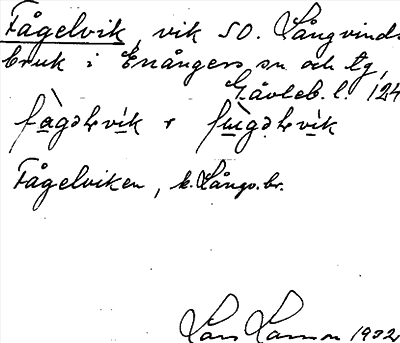 Fågelvik, vik SO. Långvinds
bruk i Enångers sn och tg,
Gävleb. l. 124
fàgəlvík r fùgəlvík
Fågelviken, k. Långv. br.
Lars Larsson 1932